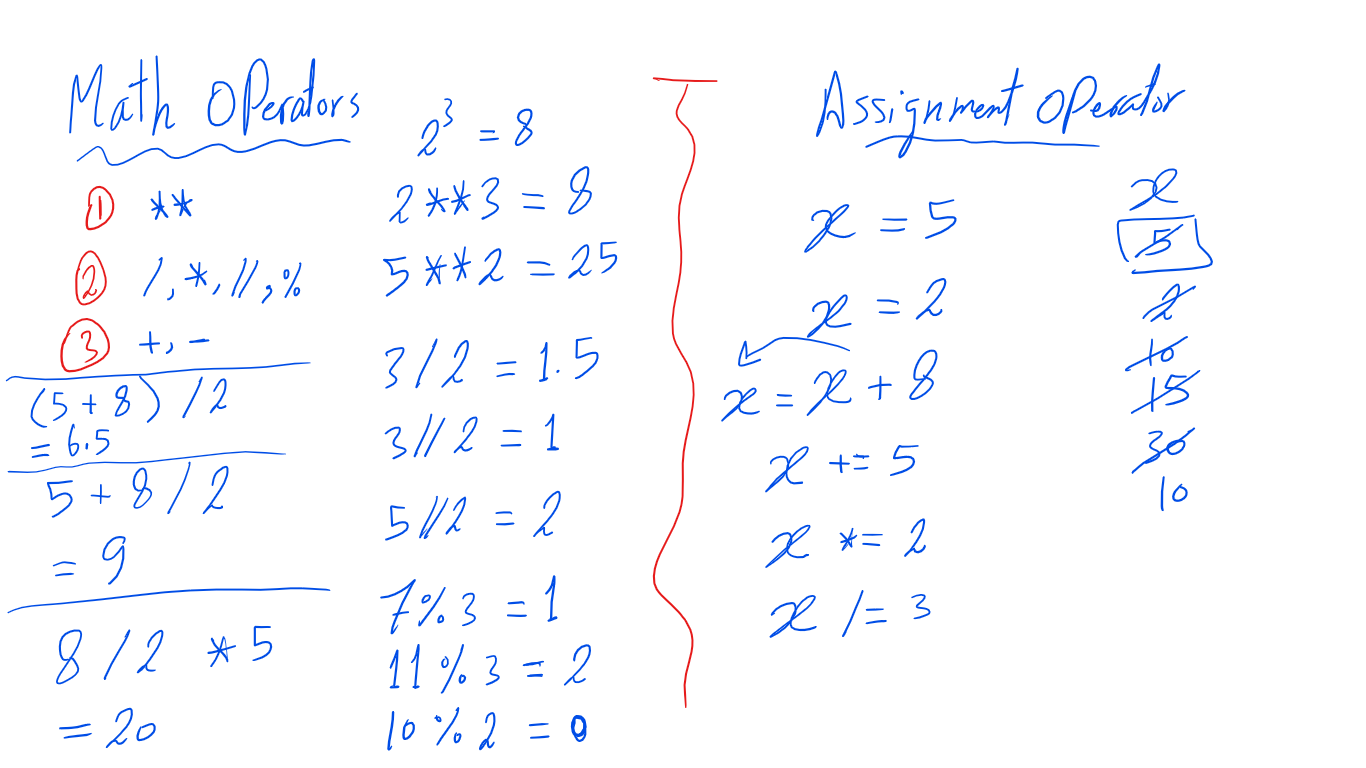 Math Operators
① **
② /, *, //, %
③ +, -
(5 + 8) / 2
= 6.5
5 + 8 / 2
= 9
8 / 2 * 5
= 20
2³ = 8
2**3 = 8
5**2 = 25
3/2 = 1.5
3//2 = 1
5//2 = 2
7%3 = 1
11%3 = 2
10%2 = 0
Assignment Operator
x = 5
x = 2
x = x + 8
x += 5
x *= 2
x /= 3
x
5
2
10
15
30
10